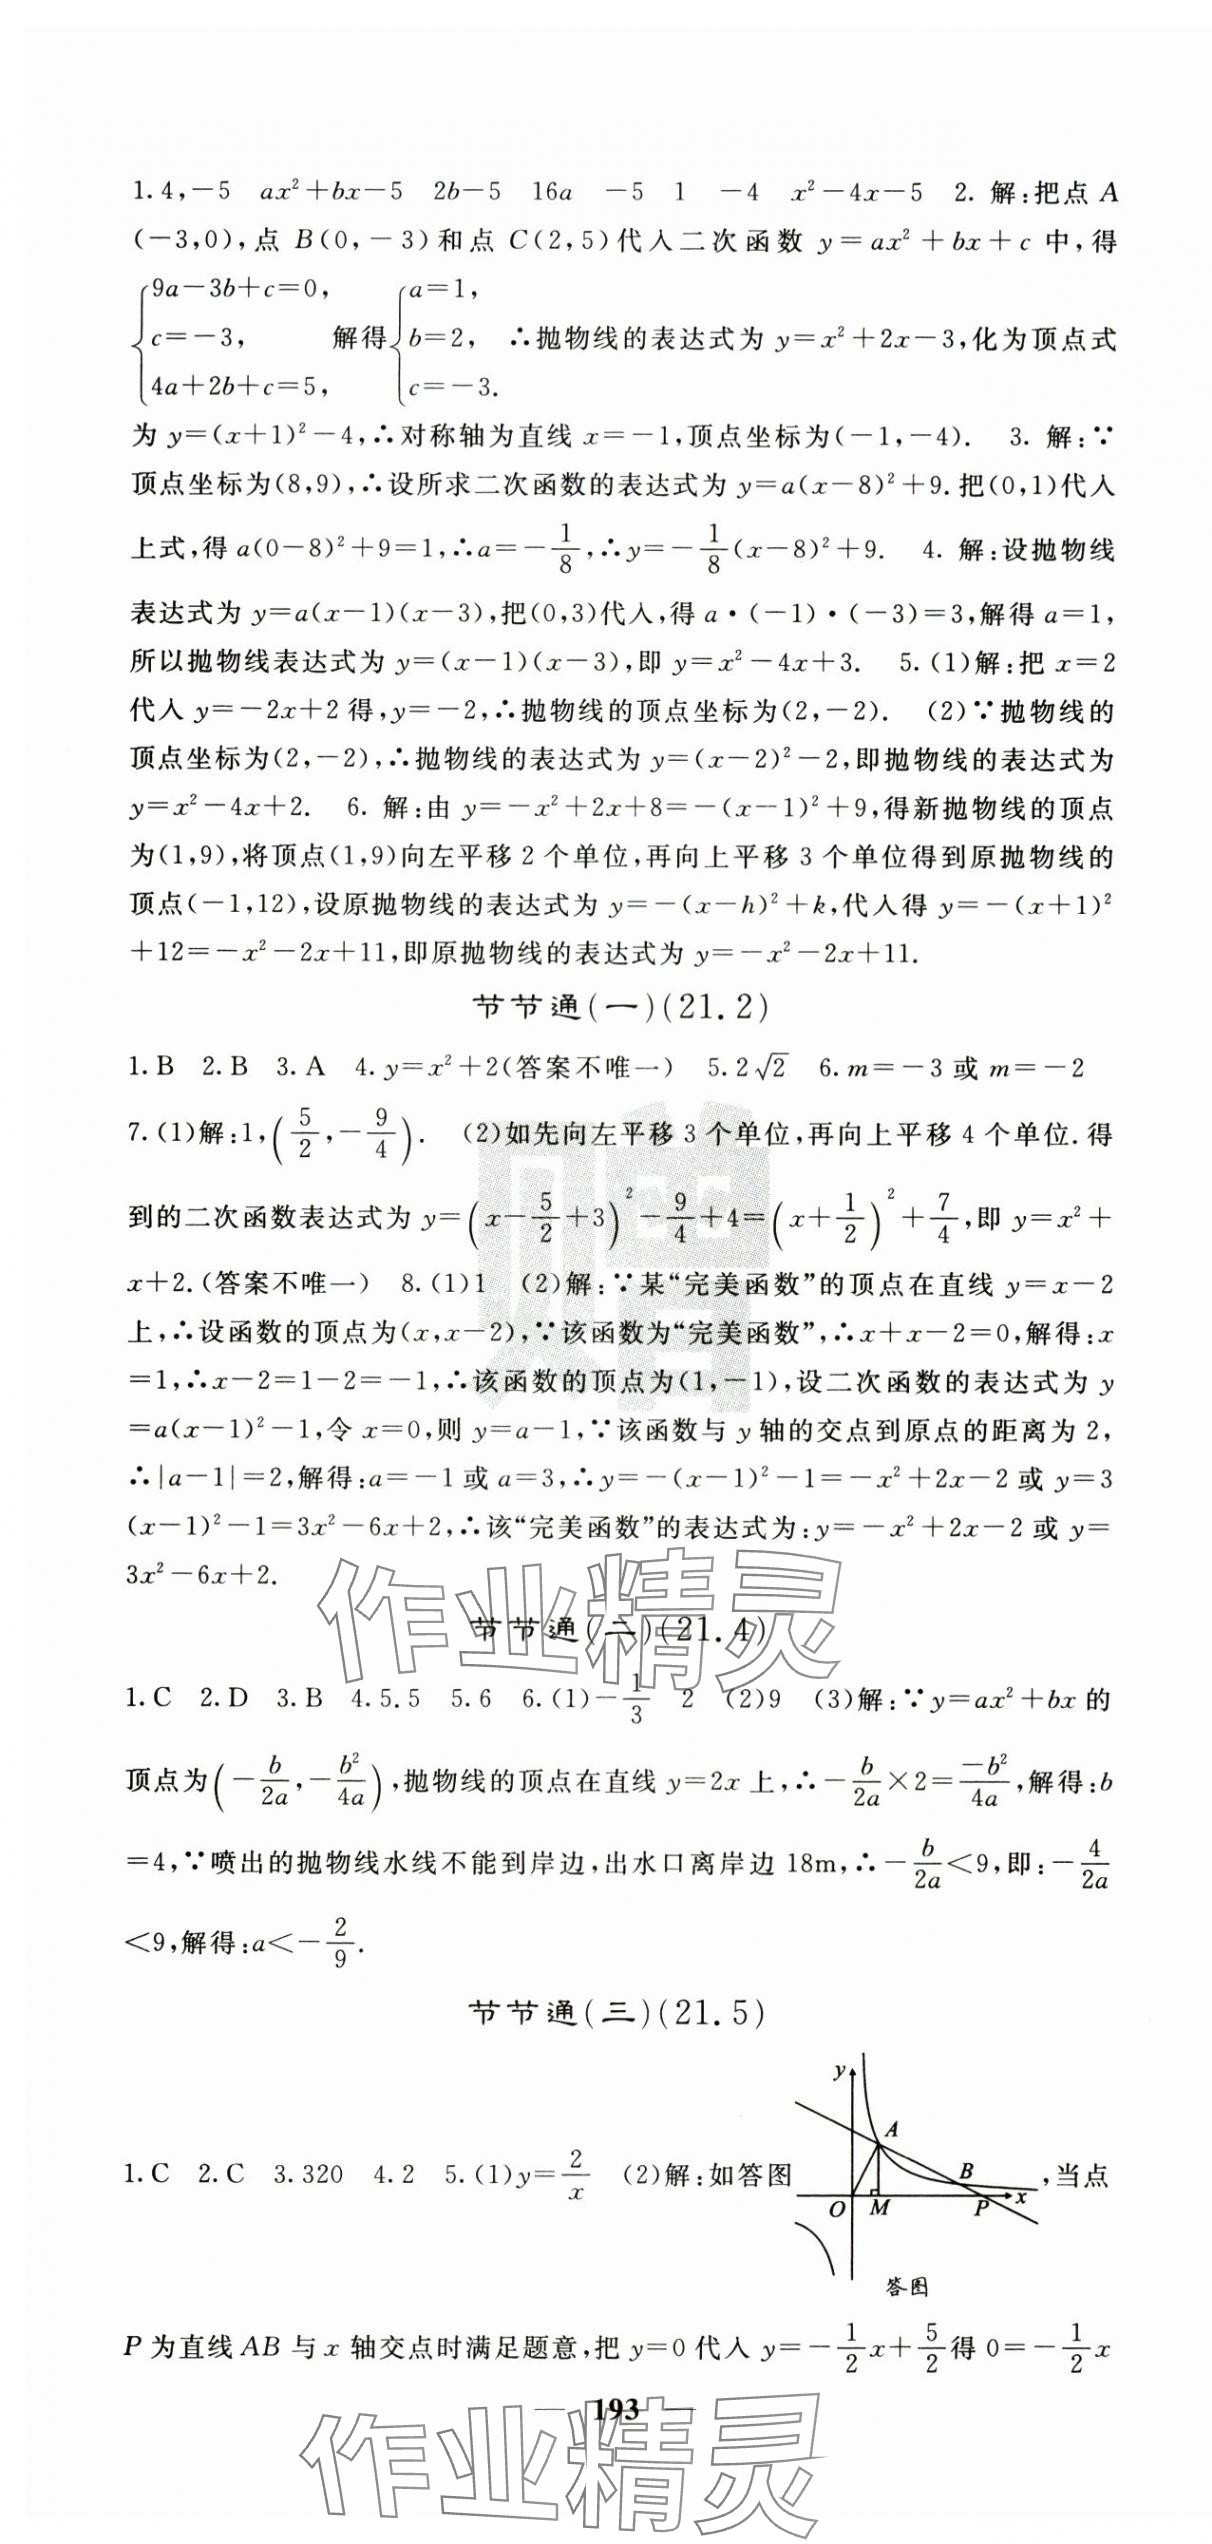 1.4,-5 ax²+bx-5 2b-5 16a -5 1 -4 x²-4x-5 2. 解:把点 A
(-3,0),点 B(0,-3)和点 C(2,5)代入二次函数 y=ax²+bx+c 中,得
{9a-3b+c=0, {a=1,
c=-3, 解得 b=2, ∴抛物线的表达式为 y=x²+2x-3,化为顶点式
4a+2b+c=5, c=-3.
为 y=(x+1)²-4,∴对称轴为直线 x=-1,顶点坐标为(-1,-4). 3. 解:∵
顶点坐标为(8,9),∴设所求二次函数的表达式为 y=a(x-8)²+9.把(0,1)代入
上式,得 a(0-8)²+9=1,∴a=-1/8,∴y=-1/8(x-8)²+9. 4. 解:设抛物线
表达式为 y=a(x-1)(x-3),把(0,3)代入,得 a·(-1)·(-3)=3,解得 a=1,
所以抛物线表达式为 y=(x-1)(x-3),即 y=x²-4x+3. 5.(1)解:把 x=2
代入 y=-2x+2得,y=-2,∴抛物线的顶点坐标为(2,-2). (2)∵抛物线的
顶点坐标为(2,-2),∴抛物线的表达式为 y=(x-2)²-2,即抛物线的表达式为
y=x²-4x+2. 6. 解:由 y=-x²+2x+8=-(x-1)²+9,得新抛物线的顶点
为(1,9),将顶点(1,9)向左平移 2 个单位,再向上平移 3 个单位得到原抛物线的
顶点(-1,12),设原抛物线的表达式为 y=-(x-h)²+k,代入得 y=-(x+1)²
+12=-x²-2x+11,即原抛物线的表达式为 y=-x²-2x+11.
节节通(一)(21.2)
1.B 2.B 3.A 4.y=x²+2(答案不唯一) 5.2√2 6.m=-3 或 m=-2
7.(1)解:1,(5/2,-9/4). (2)如先向左平移 3 个单位,再向上平移 4 个单位.得
到的二次函数表达式为 y=(x-5/2+3)²-9/4+4=(x+1/2)²+7/4,即 y=x²+
x+2.(答案不唯一) 8.(1)1 (2)解:∵某“完美函数”的顶点在直线 y=x-2
上,∴设函数的顶点为(x,x-2),∵该函数为“完美函数”,∴x+x-2=0,解得:x
=1,∴x-2=1-2=-1,∴该函数的顶点为(1,-1),设二次函数的表达式为 y
=a(x-1)²-1,令 x=0,则 y=a-1,∵该函数与 y 轴的交点到原点的距离为 2,
∴|a-1|=2,解得:a=-1 或 a=3,∴y=-(x-1)²-1=-x²+2x-2 或 y=3
(x-1)²-1=3x²-6x+2,∴该“完美函数”的表达式为:y=-x²+2x-2 或 y=
3x²-6x+2.
作业精灵
节节通(二)(21.4)
1.C 2.D 3.B 4.5.5 5.6 6.(1)-1/3 2 (2)9 (3)解:∵y=ax²+bx 的
顶点为(-b/2a,-b²/4a),抛物线的顶点在直线 y=2x 上,∴-b/2a×2=-b²/4a,解得:b
=4,∵喷出的抛物线水线不能到岸边,出水口离岸边 18m,∴-b/2a<9,即:-4/2a
<9,解得:a<-2/9.
节节通(三)(21.5)
y
A
B
O M P x
1.C 2.C 3.320 4.2 5.(1)y=2/x (2)解:如答图 ,当点
答图
P 为直线 AB 与 x 轴交点时满足题意,把 y=0 代入 y=-1/2x+5/2得 0=-1/2x
193
作业精灵